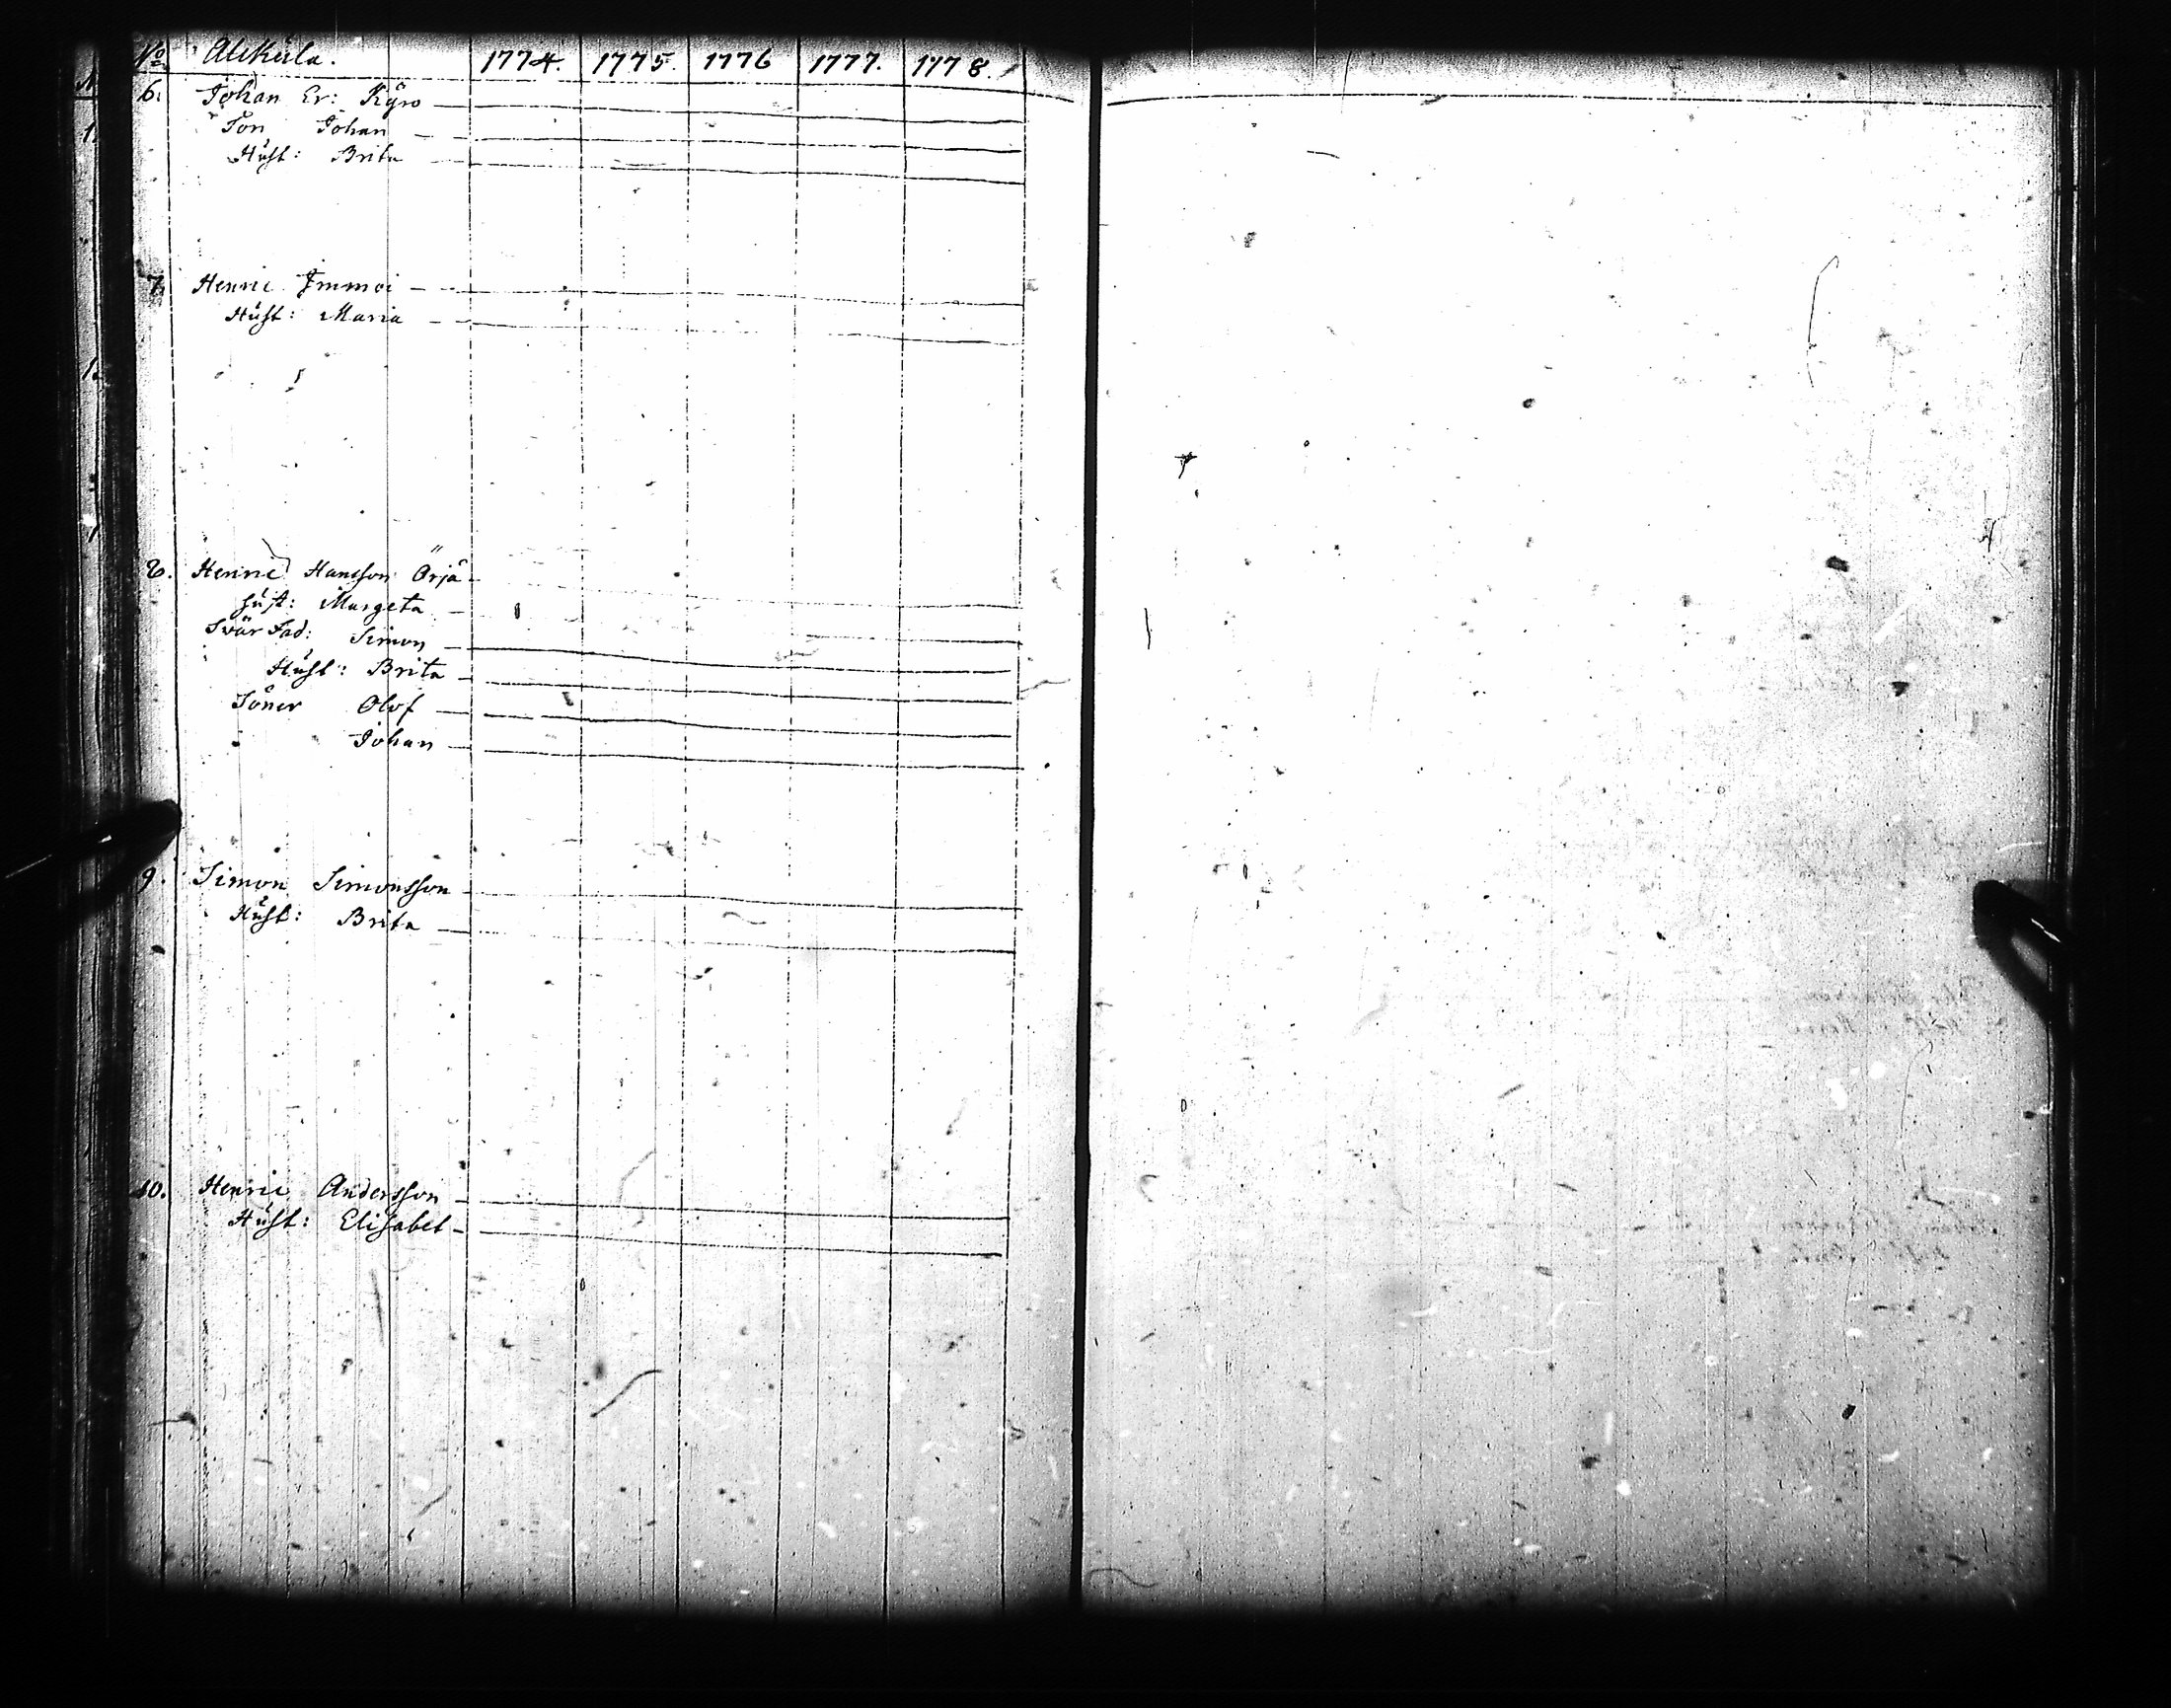 No Alikÿla. 1774. 1775. 1776 1777. 1778.
6. Johan Er: Kÿro
Son Johan
Hust: Brita
7. Henric Immoi
Hust: Maria
8. Henric Hansson Örjä
hust: Margeta
Svär Fad: Simon
Hust: Brita
Söner Olof
Johan
9. Simon Simonsson
Hust: Brita
10. Henric Andersson
Hust: Elisabet